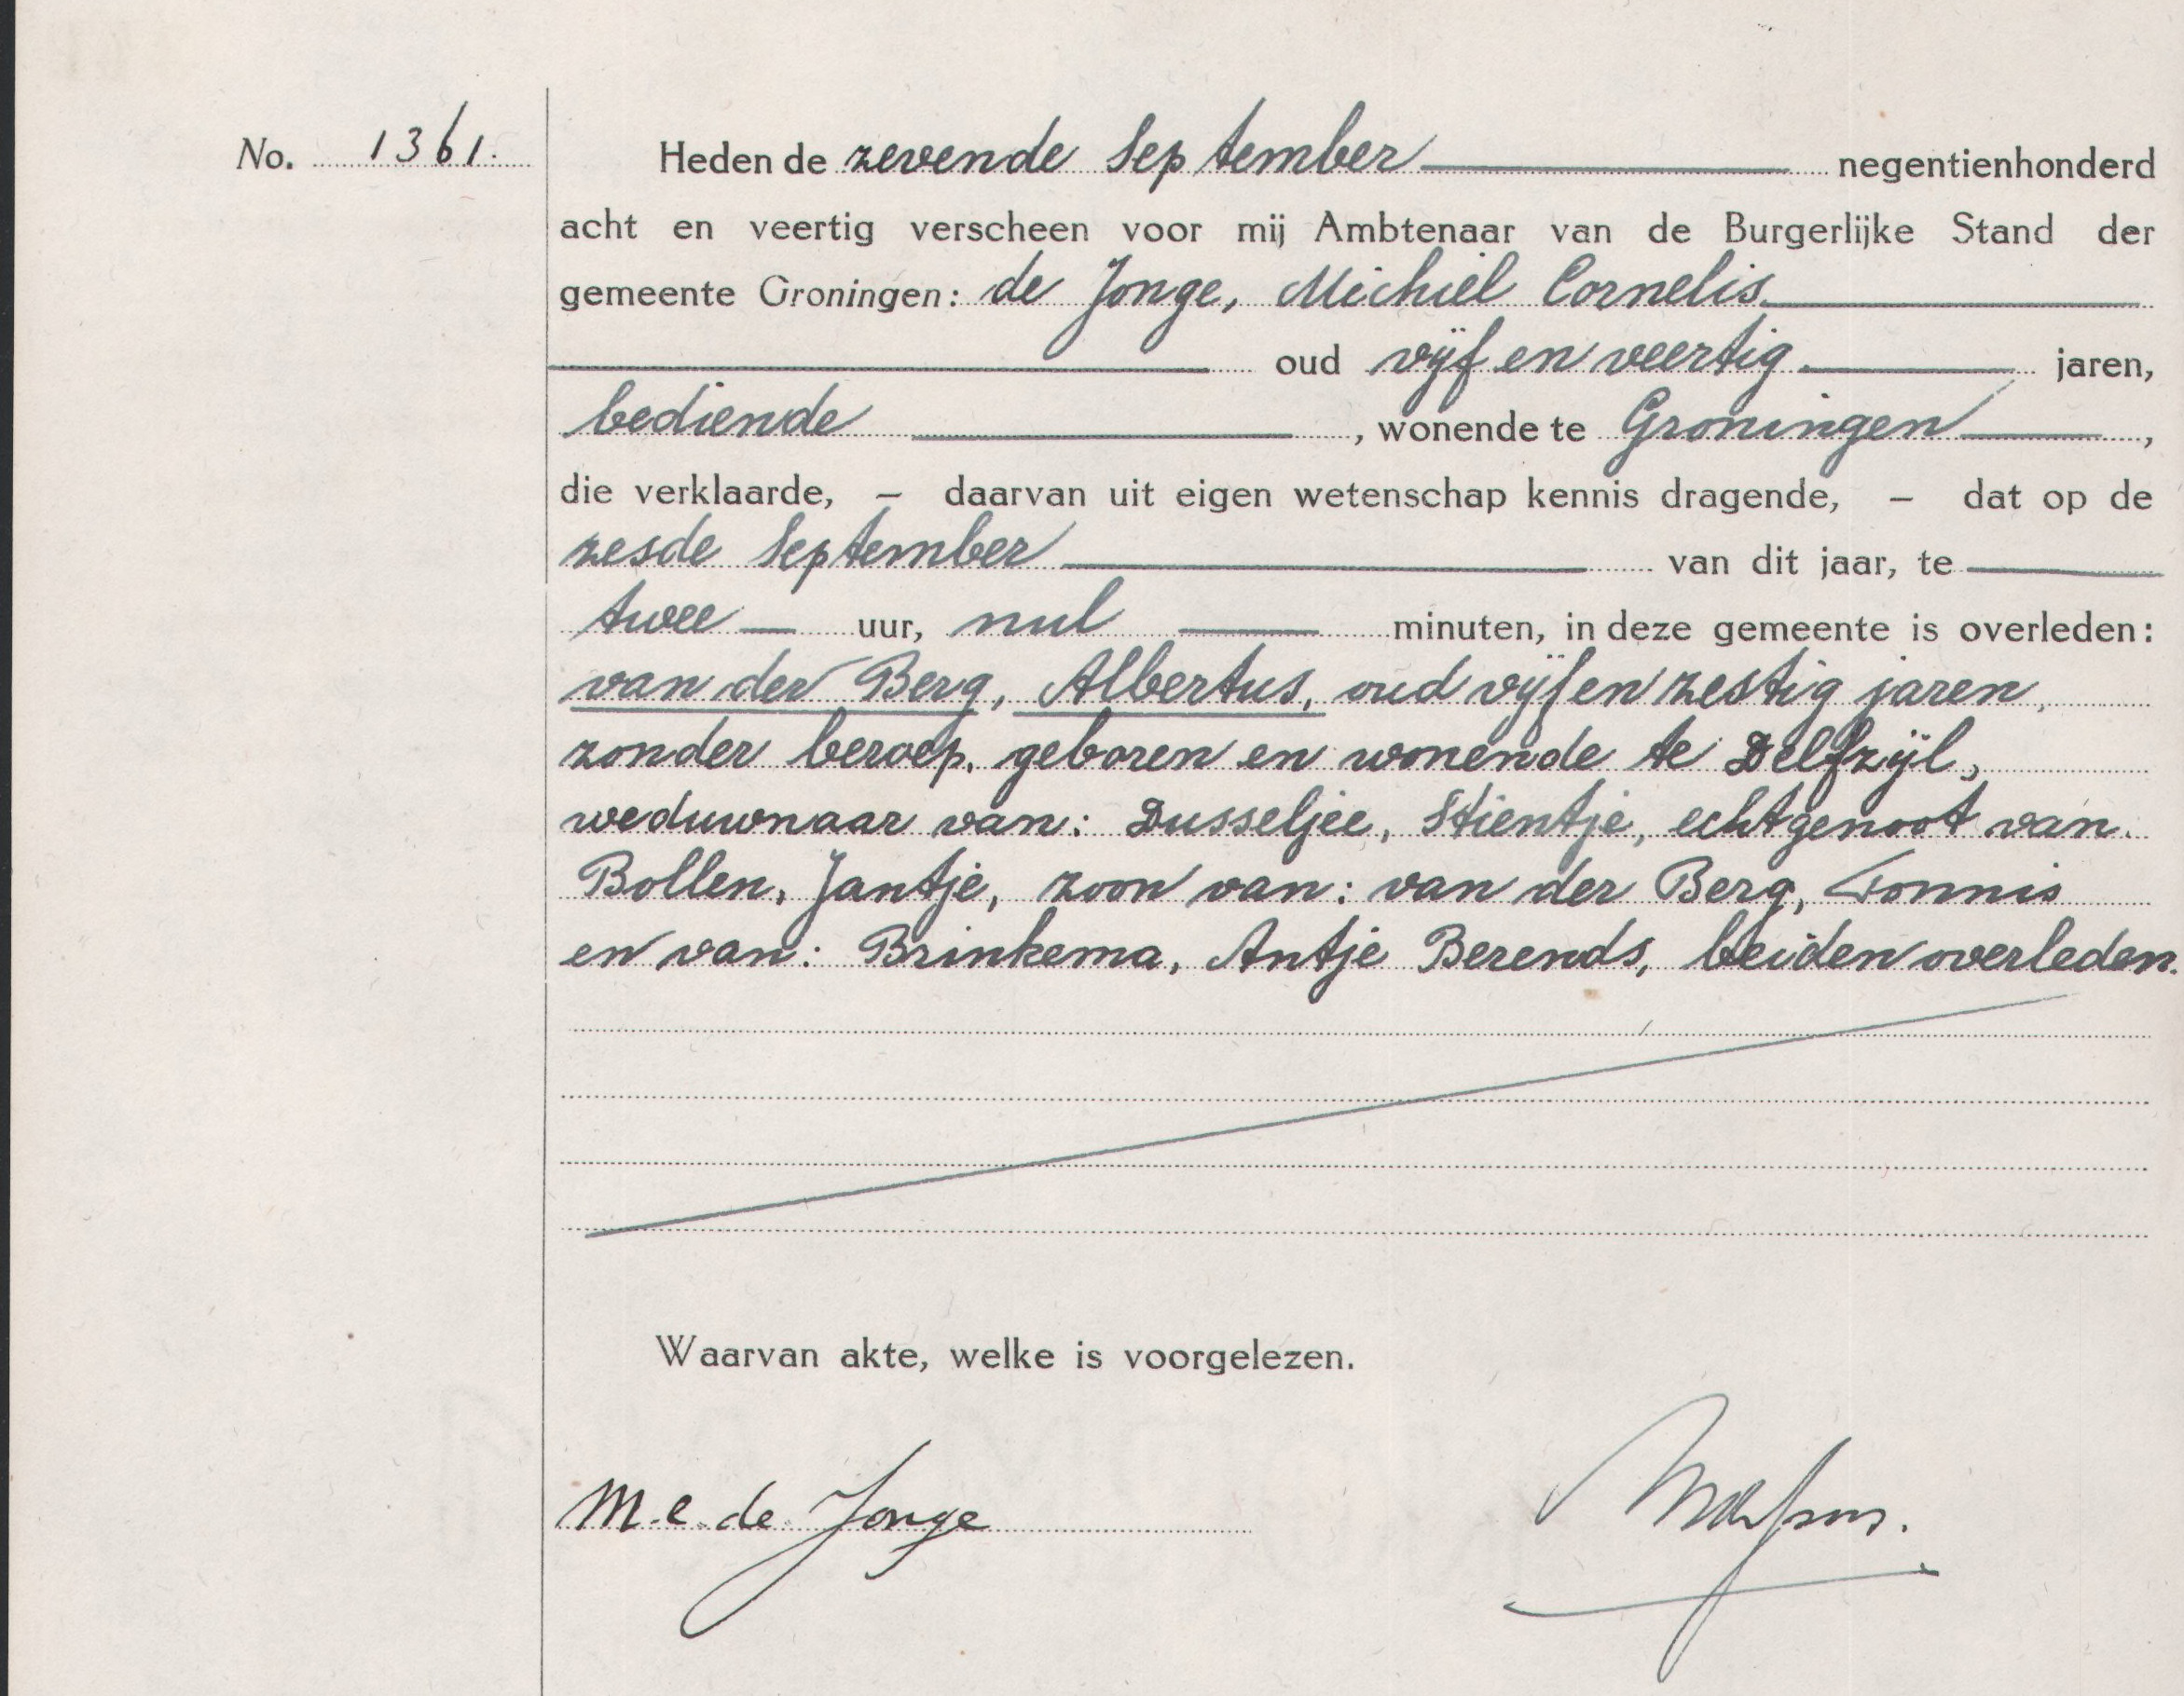 No. 1361.
Heden de zevende September negentienhonderd
acht en veertig verscheen voor mij Ambtenaar van de Burgerlijke Stand der
gemeente Groningen: de Jonge, Michiel Cornelis
oud vijf en veertig jaren,
bediende, wonende te Groningen,
die verklaarde, – daarvan uit eigen wetenschap kennis dragende, – dat op de
zesde September van dit jaar, te
twee uur, nul minuten, in deze gemeente is overleden:
van der Berg, Albertus, oud vijf en zestig jaren,
zonder beroep, geboren en wonende te Delfzijl,
weduwnaar van: Dusseljee, Stientje, echtgenoot van
Bollen, Jantje, zoon van: van der Berg, Tonnis
en van: Brinkema, Antje Berends, beiden overleden.
Waarvan akte, welke is voorgelezen.
M. C. de Jonge